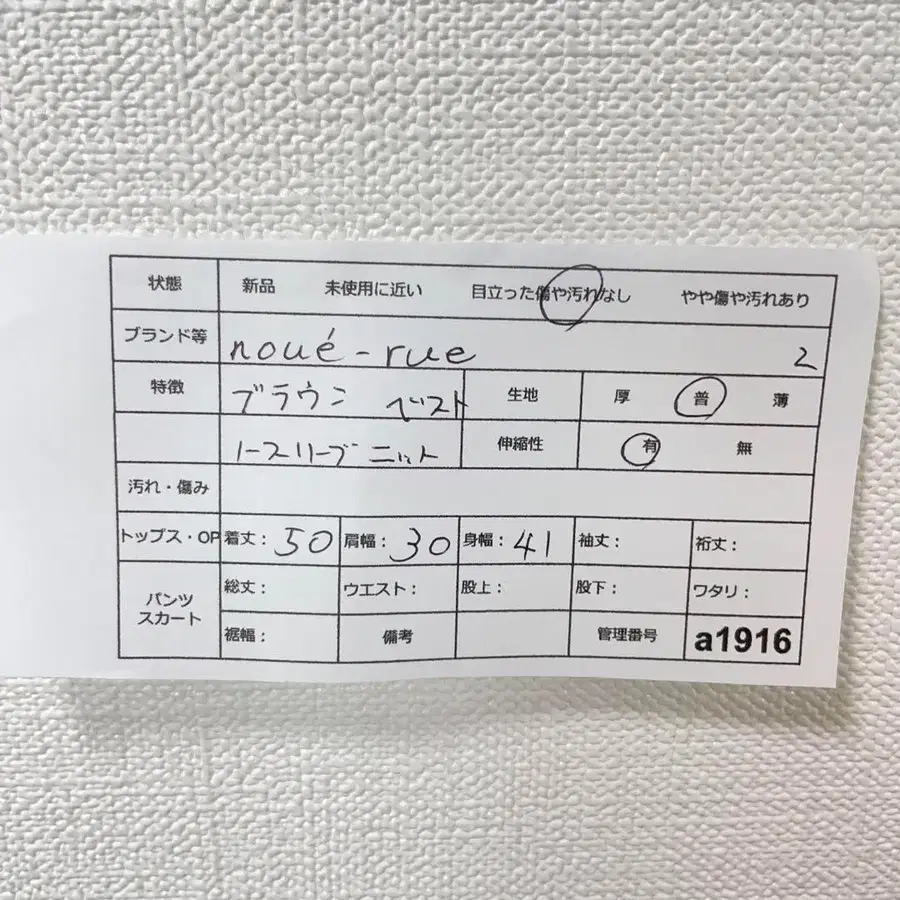 状態 新品 未使用に近い 目立った傷や汚れなし やや傷や汚れあり
ブランド等 noué-rue 2
特徴 ブラウン ベスト 生地 厚 普 薄
ノースリーブニット 伸縮性 有 無
汚れ・傷み
トップス・OP 着丈： 50 肩幅： 30 身幅： 41 袖丈： 裄丈：
パンツ スカート 総丈： ウエスト： 股上： 股下： ワタリ：
裾幅： 備考 管理番号 a1916